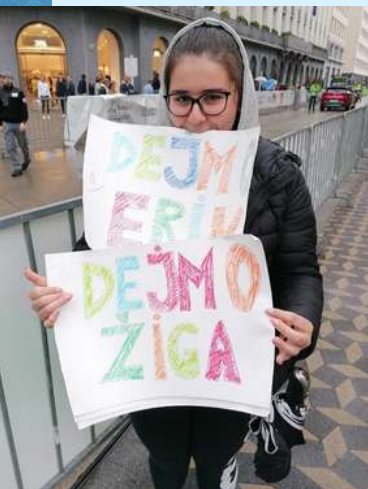 DEJM
ERIK
DEJMO
ŽIGA